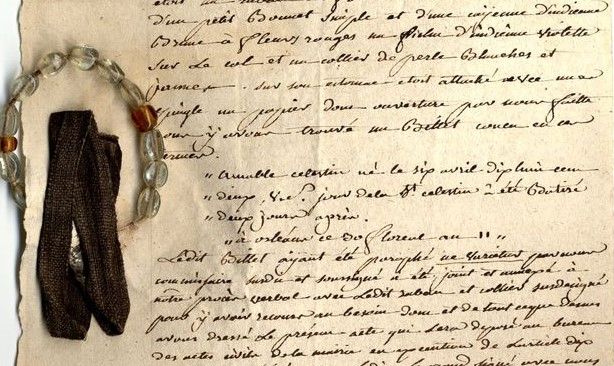 d'un petit Bonnet Simple et d'une cojenne d'indienne
Brune à fleurs rouges un fichu d'indienne violette
Sur Le col et un collier de perle Blanches et
jaunes. sur son estomac etoit attaché avec une
epingle un papier dont ouverture par nous faitte
pour y avons trouvé un Billet concu en ces
termes.
" aimable celestin né le six avril dixhuit cent
" deux, jour de la St celestin a été Batisé
" deux jours après.
" à orléans ce floreal an "
Ledit Billet ayant été paraphé ne varietur par nous
commissaire susdit et soussigné a été joint et annexé à
notre procès verbal avec Ledit ruban et collier susdesigné
pour y avoir recours au besoin dont et de tout ceque dessus
avons dressé Le present acte qui Sera deposé au bureau
des actes civils de la mairie en execution de Larticle dix
signé avec nous